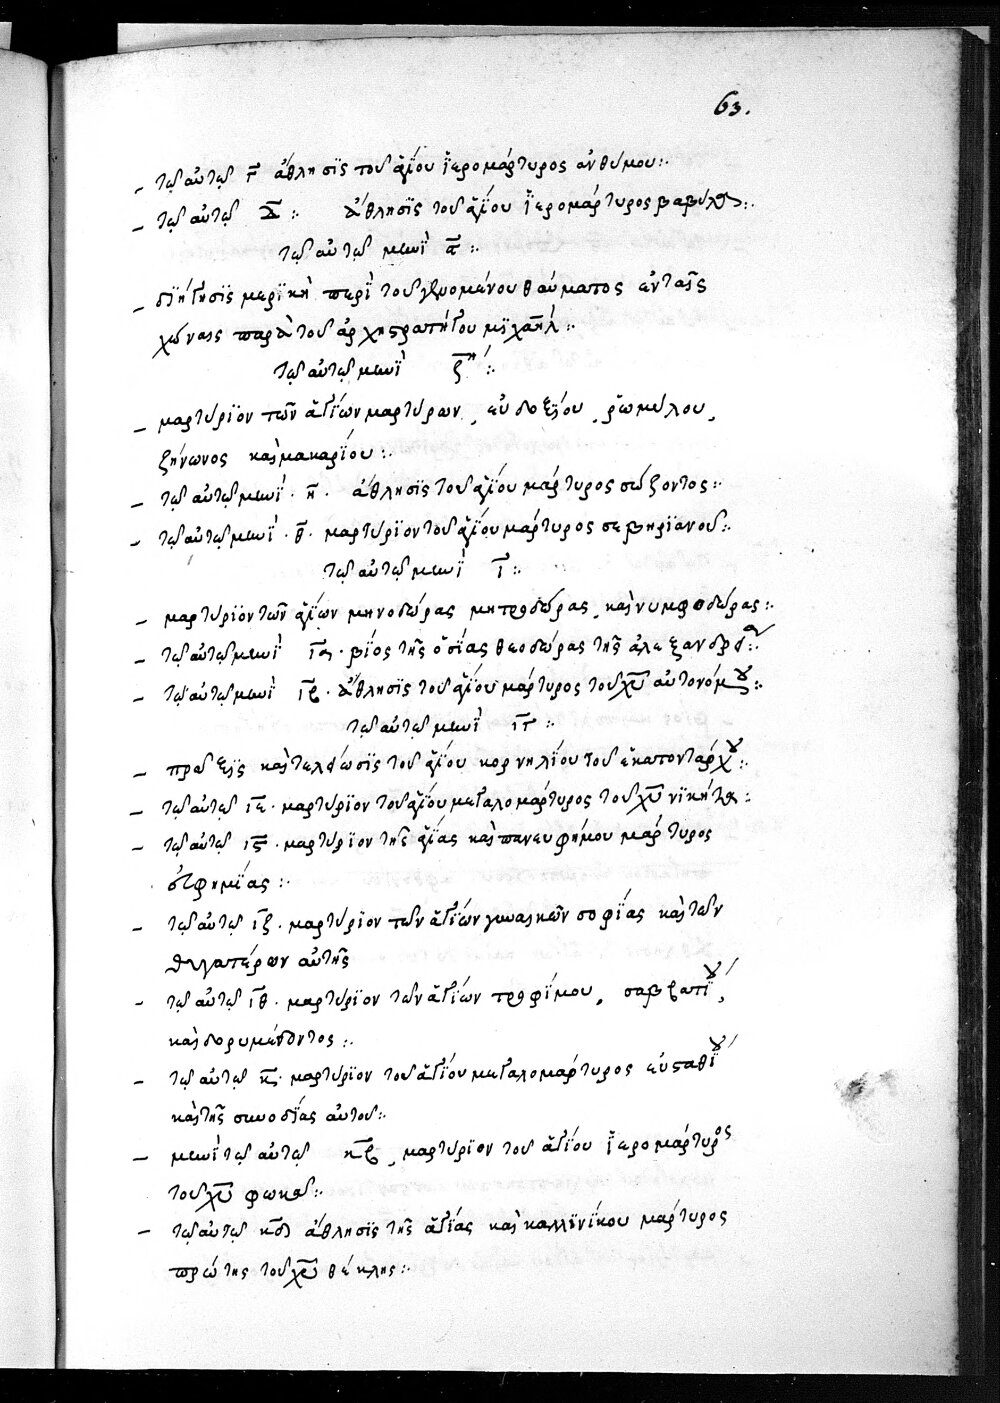 63.
– τῷ αὐτῷ γ̅ ἄθλησϊς τοῦ ἁγίου ἱερομάρτυρος ἀνθίμου:.
– τῷ αὐτῷ δ̅:. ἄθλησϊς τοῦ ἁγίου ἱερομάρτυρος βαβύλα:.
τῷ αὐτῷ μηνὶ α̅:.
– διήγησϊς μερϊκὴ περὶ τοῦ γενομένου θαύματος ἐν ταῖς
χώναις παρὰ τοῦ ἀρχηστρατήγου μϊχαήλ:.
τῷ αὐτῷ μηνὶ ζ̅:.
– μαρτύριον τῶν ἁγίων μαρτύρων, εὐδοξίου, ῥωμύλου,
ζήνωνος καὶ μακαρίου:.
– τῷ αὐτῷ μηνὶ · η̅ · ἄθλησϊς τοῦ ἁγίου μάρτυρος σώζοντος:.
– τῷ αὐτῷ μηνὶ · θ̅ · μαρτύριον τοῦ ἁγίου μάρτυρος σεβηριανοῦ:.
τῷ αὐτῷ μηνὶ ι̅:.
– μαρτύριον τῶν ἁγίων μηνοδώρας μητροδώρας, καὶ νυμφοδώρας:.
– τῷ αὐτῷ μηνὶ ι̅α̅ · βίος τῆς ὁσίας θεοδώρας τῆς ἀλεξανδρ:.
– τῷ αὐτῷ μηνὶ ι̅β̅ · ἄθλησϊς τοῦ ἁγίου μάρτυρος τοῦ χ̅υ̅ αὐτονόμου:.
τῷ αὐτῷ μηνὶ ι̅γ̅:.
– πράξεις καὶ τελείωσϊς τοῦ ἁγίου κορνηλίου τοῦ ἑκατοντάρχου:.
– τῷ αὐτῷ ι̅ε̅ · μαρτύριον τοῦ ἁγίου μεγαλομάρτυρος τοῦ χ̅υ̅ νικήτα:.
– τῷ αὐτῷ ι̅ς̅ · μαρτύριον τῆς ἁγίας καὶ πανευφήμου μάρτυρος
εὐφημίας:.
– τῷ αὐτῷ ι̅ζ̅ · μαρτύριον τῶν ἁγίων γυναικῶν σοφίας καὶ τῶν
θυγατέρων αὐτῆς
– τῷ αὐτῷ ι̅θ̅ · μαρτύριον τῶν ἁγίων τροφίμου, σαββατίου,
καὶ δορυμέδοντος:.
– τῷ αὐτῷ κ̅ · μαρτύριον τοῦ ἁγίου μεγαλομάρτυρος εὐσταθίου
καὶ τῆς συνοδίας αὐτοῦ:.
– μηνὶ τῷ αὐτῷ κ̅β̅, μαρτύριον τοῦ ἁγίου ἱερομάρτυρος
τοῦ χ̅υ̅ φωκᾶ:.
– τῷ αὐτῷ κ̅δ̅ ἄθλησϊς τῆς ἁγίας καὶ καλλϊνίκου μάρτυρος
πρώτης τοῦ χ̅υ̅ θέκλης:.